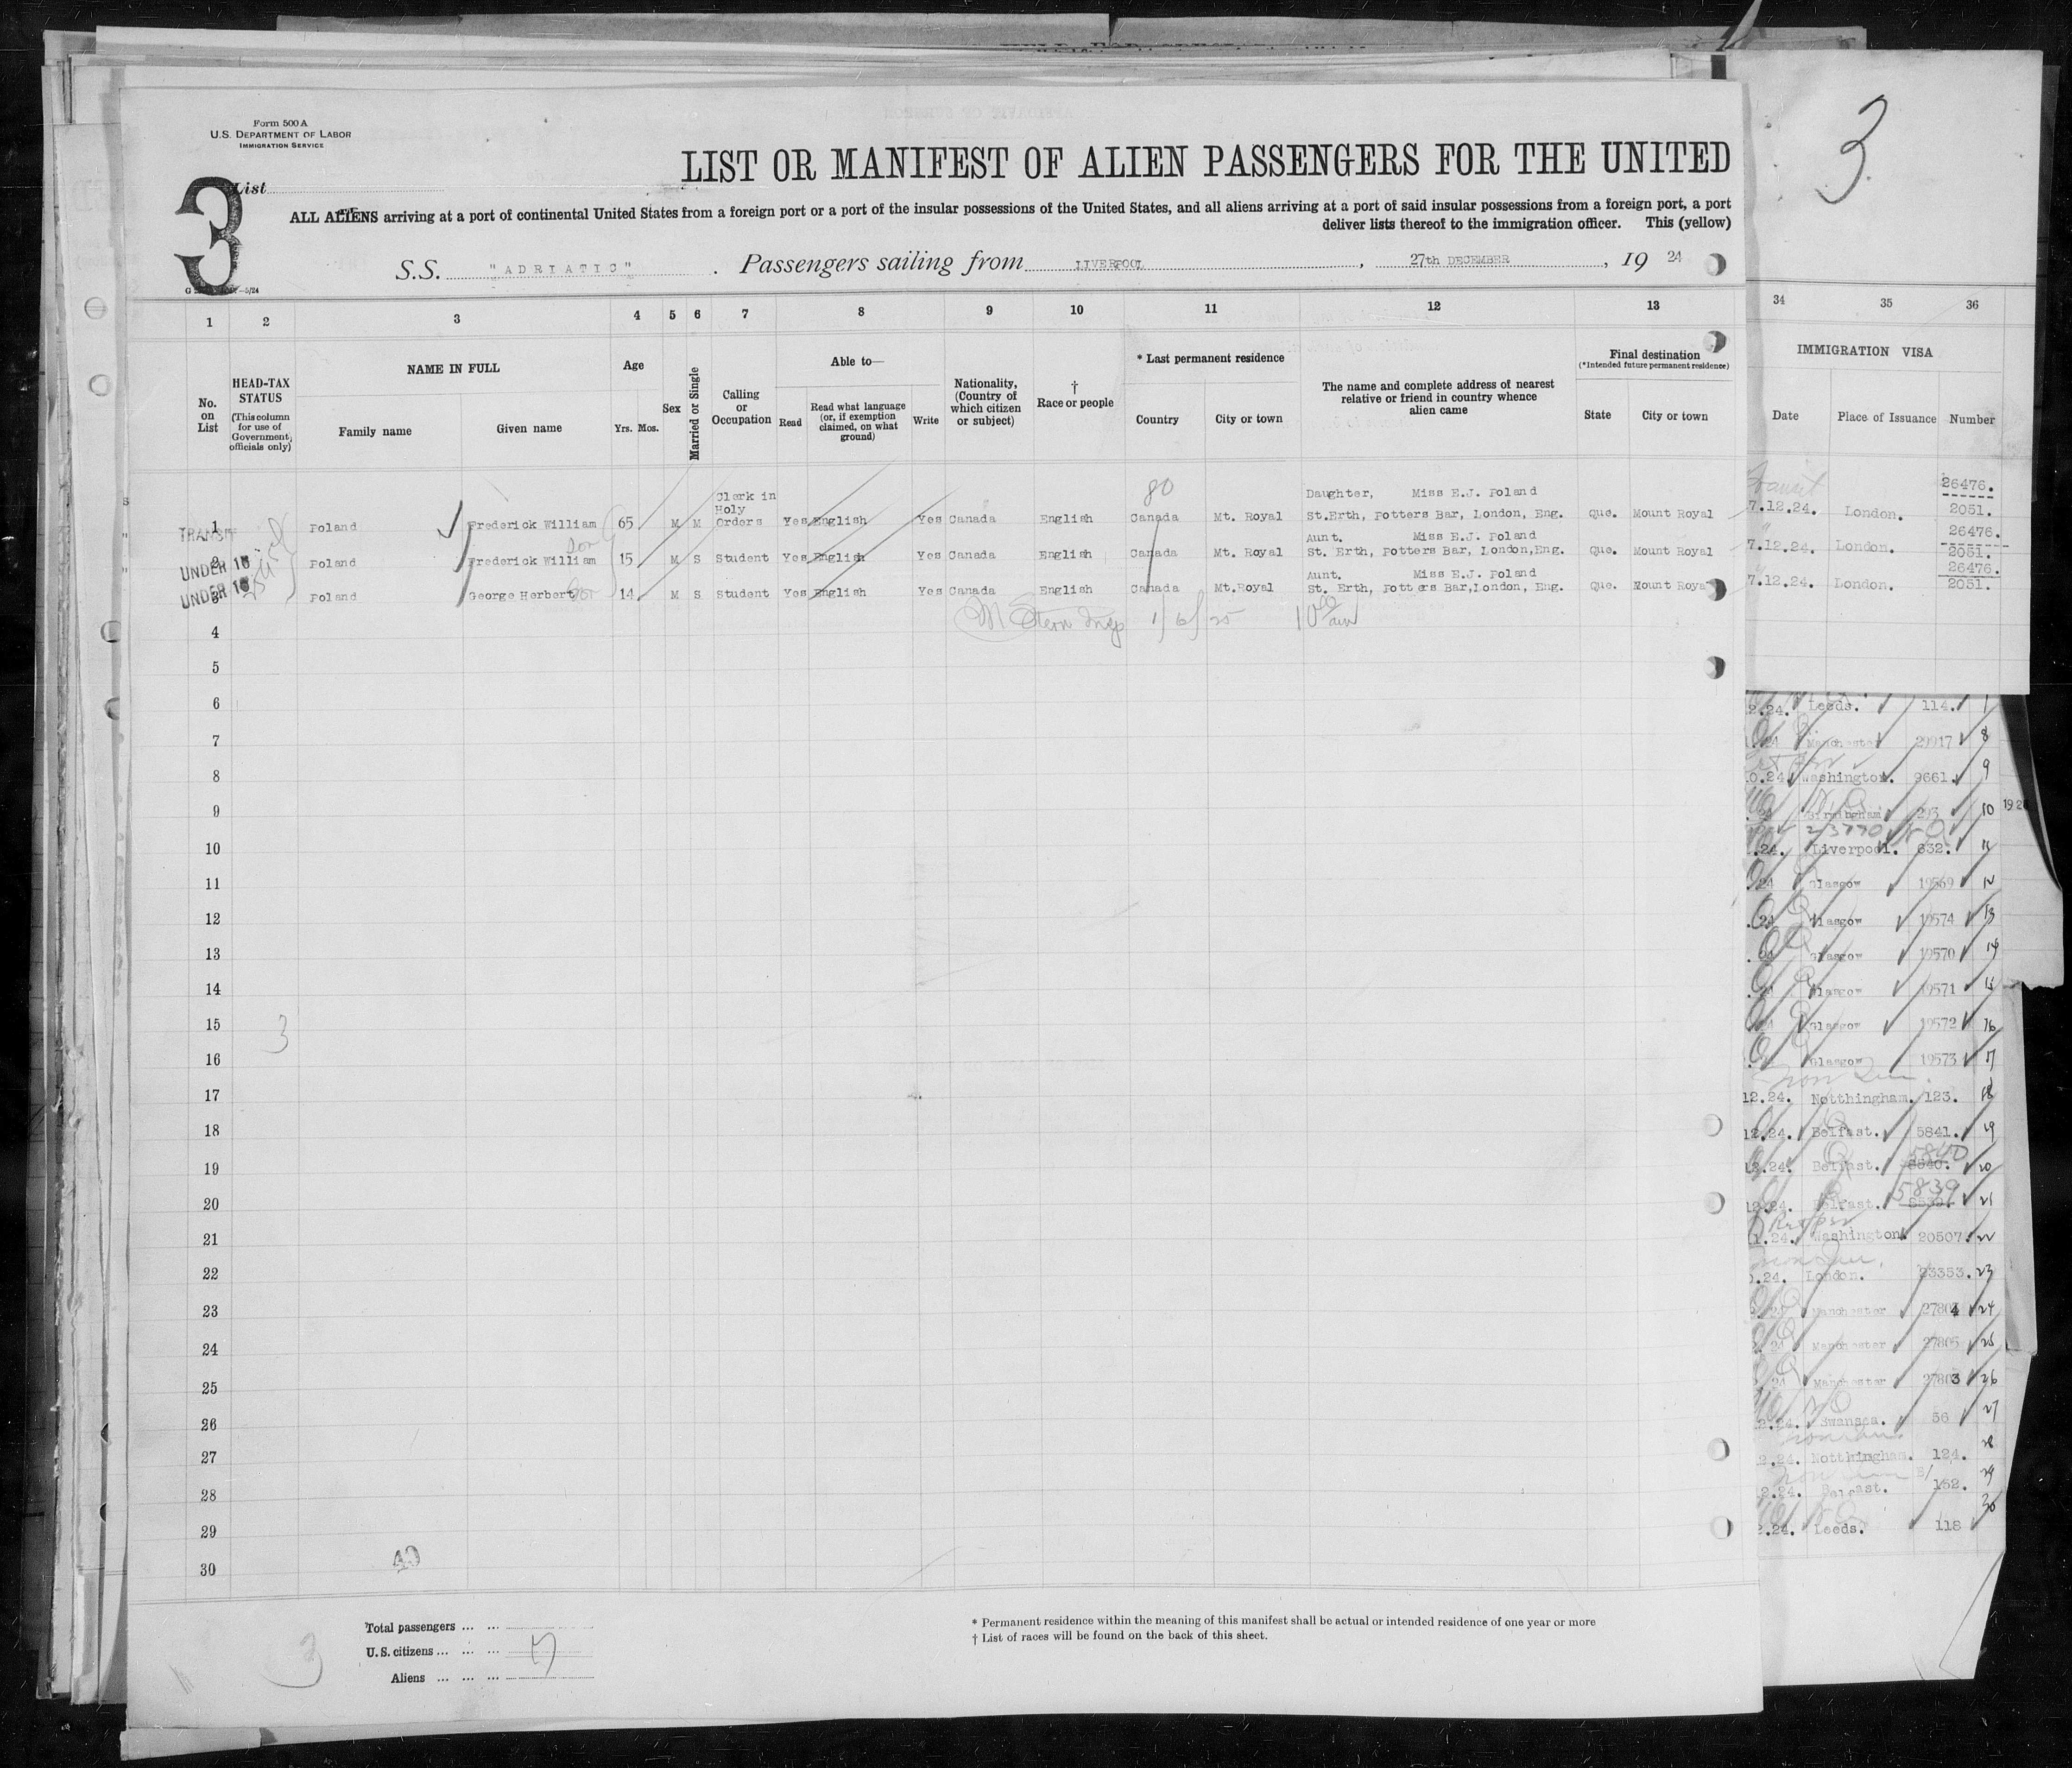 3
Form 500 A
U.S. DEPARTMENT OF LABOR
IMMIGRATION SERVICE
List
3
LIST OR MANIFEST OF ALIEN PASSENGERS FOR THE UNITED
ALL ALIENS arriving at a port of continental United States from a foreign port or a port of the insular possessions of the United States, and all aliens arriving at a port of said insular possessions from a foreign port, a port
deliver lists thereof to the immigration officer. This (yellow)
S.S. "ADRIATIC" . Passengers sailing from LIVERPOOL , 27th DECEMBER , 19 24
1 2 3 4 5 6 7 8 9 10 11 12 13 34 35 36
No. on List
HEAD-TAX STATUS
(This column for use of Government officials only)
NAME IN FULL
Family name Given name
Age
Yrs. Mos.
Sex
Married or Single
Calling or Occupation
Able to—
Read
Read what language (or, if exemption claimed, on what ground)
Write
Nationality, (Country of which citizen or subject)
† Race or people
* Last permanent residence
Country City or town
The name and complete address of nearest relative or friend in country whence alien came
Final destination
(*Intended future permanent residence)
State City or town
IMMIGRATION VISA
Date Place of Issuance Number
80
Transit
TRANSIT 1 Poland Frederick William 65 M M Clerk in Holy Orders Yes English Yes Canada English Canada Mt. Royal Daughter, Miss E.J. Poland St.Erth, Potters Bar, London, Eng. Que. Mount Royal 7.12.24. London. 26476. 2051.
UNDER 16 2 Poland Frederick William son 15 M S Student Yes English Yes Canada English Canada Mt. Royal Aunt. Miss E.J. Poland St. Erth, Potters Bar, London,Eng. Que. Mount Royal 7.12.24. London. 26476. 2051.
UNDER 16 3 Poland George Herbert son 14 M S Student Yes English Yes Canada English Canada Mt.Royal Aunt. Miss E.J. Poland St. Erth, Potters Bar,London, Eng. Que. Mount Royal 7.12.24. London. 26476. 2051.
M Stern Insp 1/6/25 10 00 am
4
5
6
7
8
9
10
11
12
13
14
15
3
16
17
18
19
20
21
22
23
24
25
26
27
28
29
30
40
2.24. Leeds. 114.
Manchester 29917 8
0.24. Washington. 9661. 9
Birmingham 293 10
23770
.24. Liverpool. 632. 11
24 Glasgow 19569 12
24 Glasgow 19574 13
Glasgow 19570 14
Glasgow 19571 15
Glasgow 19572 16
Glasgow 19573 17
12.24. Notthingham. 123. 18
12.24. Belfast. 5841. 19
5840
12.24. Belfast. 20
5839
12.24. Belfast. 21
1.24. Washington. 20507. 22
.24. London. 23353. 23
Manchester 27804 24
Manchester 27805 25
24 Manchester 27803 26
2.24. Swansea. 56 27
2.24. Notthingham. 124. 28
2.24. Belfast. 152. 29
30
2.24. Leeds. 118
Total passengers ... ...
U.S. citizens ... ... ...
Aliens ... ... ...
3
* Permanent residence within the meaning of this manifest shall be actual or intended residence of one year or more
† List of races will be found on the back of this sheet.